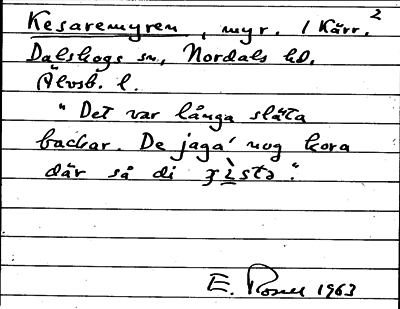 Kesaremyren, myr. / Kärr. 2
Dalskogs sn, Nordals hd.
Älvsb. l.
"Det var långa släta
backar. De jaga' nog hora
där så di
E. 1963